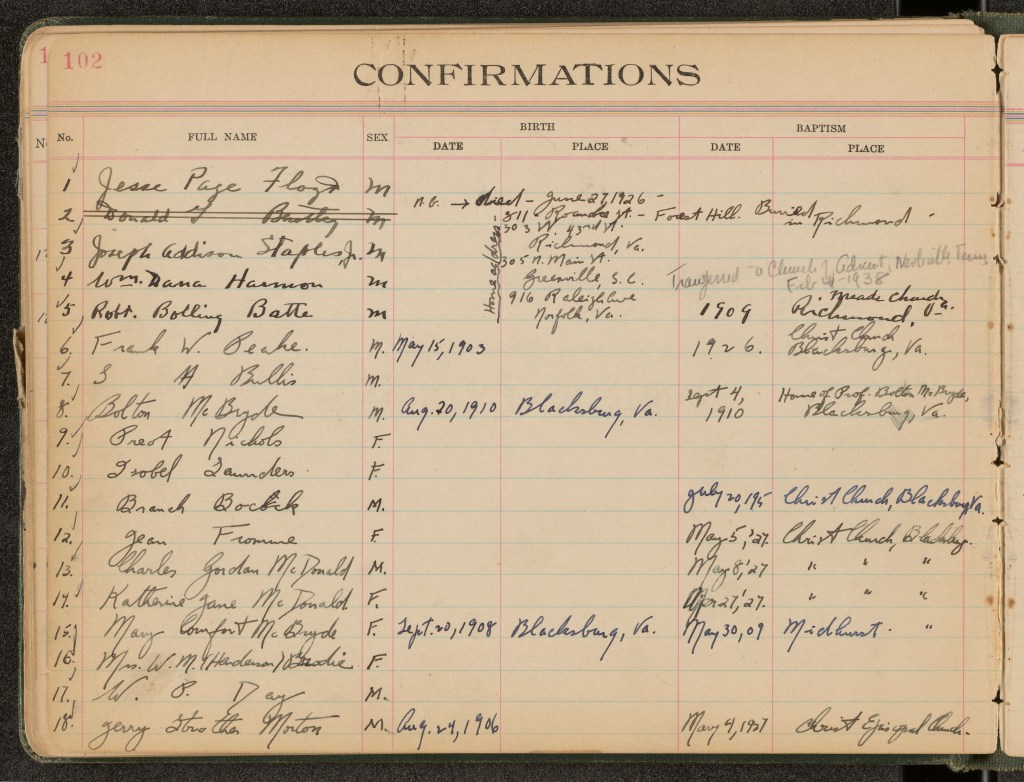 102
CONFIRMATIONS
No. FULL NAME SEX BIRTH BAPTISM
DATE PLACE DATE PLACE
1 Jesse Page Floyd M
N.G. → died - June 27, 1926 -
2 Donald G Bentley M 811 Roanoke St. - Forest Hill. Buried in Richmond -
Home address:
303 W. 43rd St.
3 Joseph Addison Staples Jr. M Richmond, Va.
305 N. Main St.
4 Wm. Dana Harmon M Greenville, S.C. Transferred to Church of Advent, Nashville Tenn
Feb 1938
916 Raleigh Ave
5 Robt. Bolling Batte M Norfolk, Va. 1909 Meade
Richmond, Va.
6. Frank W. Beahe. M. May 15, 1903 1926. Christ Church
Blacksburg, Va.
7. S H Bullis M.
8. Bolton McBryde M. Aug. 20, 1910 Blacksburg, Va. Sept 4, 1910 Home of Prof. Bolton McBryde,
Blacksburg, Va.
9. Preot Nichols F.
10. Isobel Saunders F.
11. Branch Bocock M. July 20, Christ Church, Blacksburg Va.
12. Jean Fromme F. May 5, '27. Christ Church, Blacksburg.
13. Charles Gordon McDonald M. May 8, '27 " " "
14. Katherine Jane McDonald F. Apr 27, '27. " " "
15. Mary Comfort McBryde F. Sept. 20, 1908 Blacksburg, Va. May 30, 09 Midhurst. "
16. Mrs. W. M. (Henderson) Brodie F.
17. W. P. Day M.
18. Jerry Strother Morton M. Aug. 24, 1906 May 4, 1927 Christ Episcopal Church.